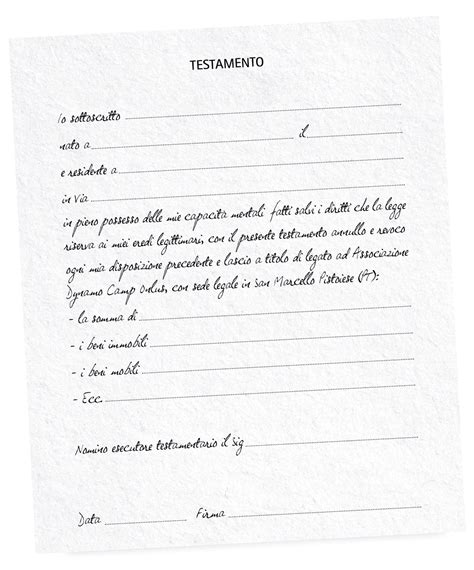 TESTAMENTO
Io sottoscritto
nato a il
e residente a
in via
in pieno possesso delle mie capacità mentali fatti salvi i diritti che la legge
riserva ai miei eredi legittimari, con il presente testamento annullo e revoco
ogni mia disposizione precedente e lascio a titolo di legato ad Associazione
Dynamo Camp Onlus, con sede legale in San Marcello Pistoiese (PT):
- la somma di
- i beni immobili
- i beni mobili
- Ecc.
Nomino esecutore testamentario il Sig
Data Firma